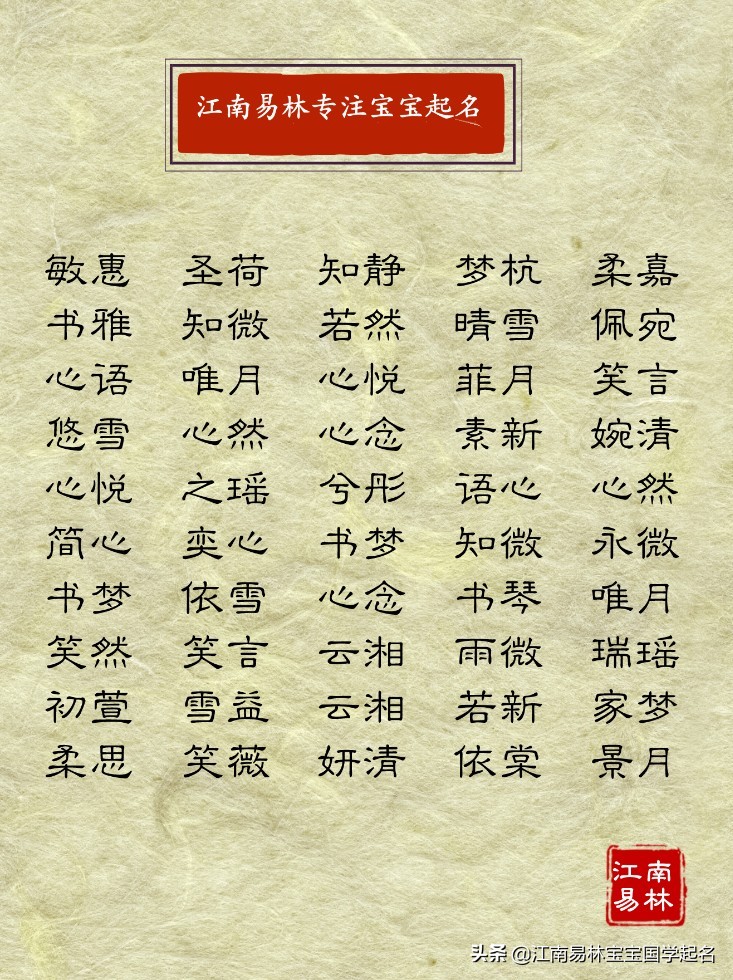 江南易林专注宝宝起名
敏惠 圣荷 知静 梦杭 柔嘉
书雅 知微 若然 晴雪 佩宛
心语 唯月 心悦 菲月 笑言
悠雪 心然 心念 素新 婉清
心悦 之瑶 兮彤 语心 心然
简心 奕心 书梦 知微 永微
书梦 依雪 心念 书琴 唯月
笑然 笑言 云湘 雨微 瑞瑶
初萱 雪益 云湘 若新 家梦
柔思 笑薇 妍清 依棠 景月
江南
易林
头条 @江南易林宝宝国学起名